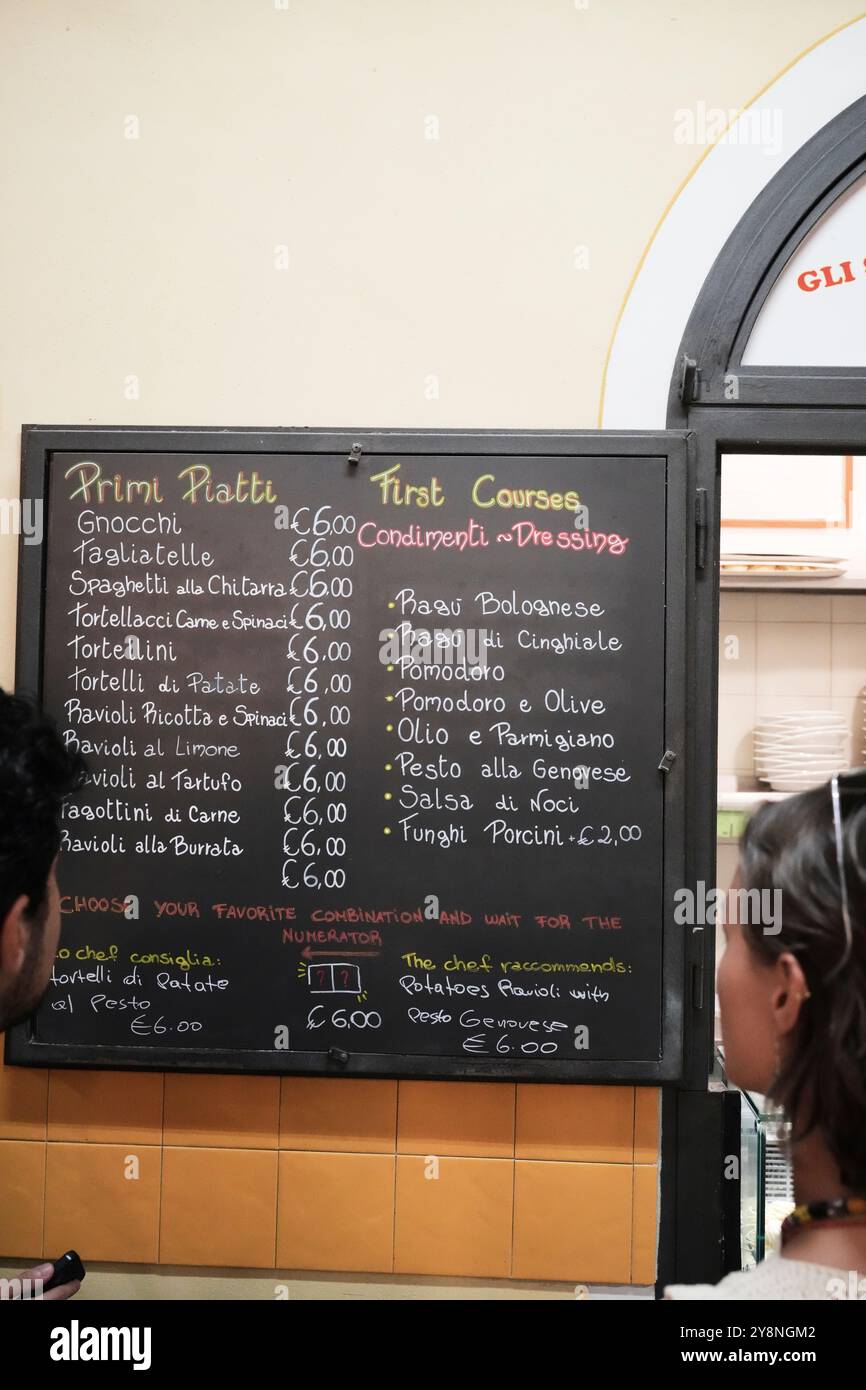 GLI
Primi Piatti
Gnocchi €6,00
Tagliatelle €6,00
Spaghetti alla Chitarra €6,00
Tortellacci Carne e Spinaci €6,00
Tortellini €6,00
Tortelli di Patate €6,00
Ravioli Ricotta e Spinaci €6,00
Ravioli al Limone €6,00
Ravioli al Tartufo €6,00
Fagottini di Carne €6,00
Ravioli alla Burrata €6,00
€6,00
First Courses
Condimenti ~ Dressing
• Ragù Bolognese
• Ragù di Cinghiale
• Pomodoro
• Pomodoro e Olive
• Olio e Parmigiano
• Pesto alla Genovese
• Salsa di Noci
• Funghi Porcini + €2,00
CHOOSE YOUR FAVORITE COMBINATION AND WAIT FOR THE
NUMERATOR
Lo chef consiglia:
Tortelli di Patate
al Pesto
€6.00
? ?
€6,00
The chef raccommends:
Potatoes Ravioli with
Pesto Genovese
€6.00
alamy
alamy
Image ID: 2Y8NGM2
www.alamy.com